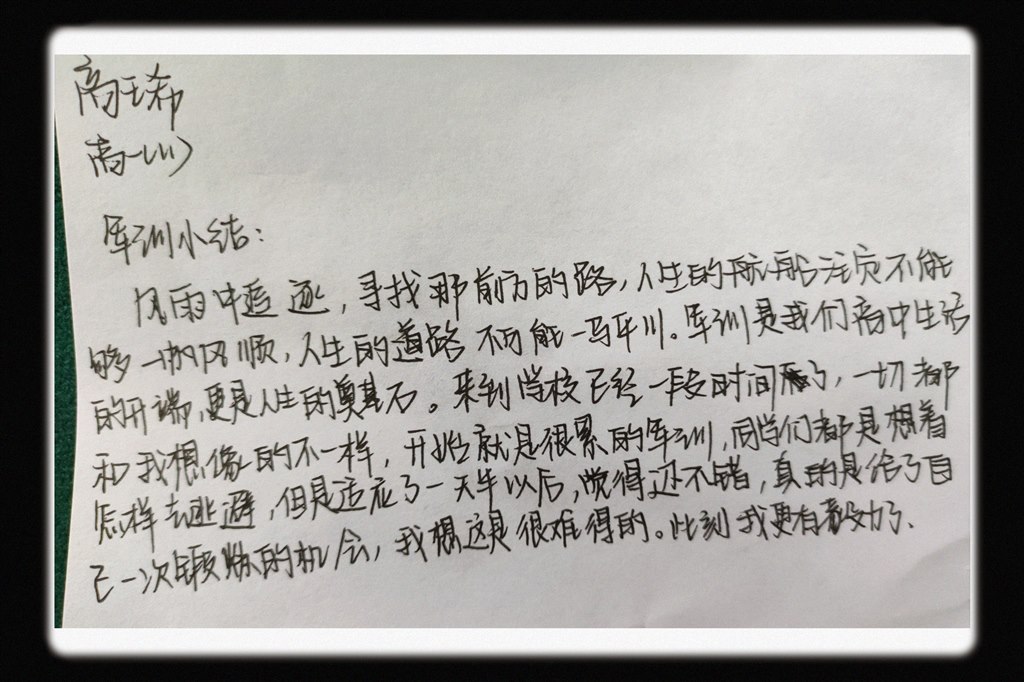 高玉希
高一(11)
军训小结:
风雨中追逐,寻找那前方的路,人生的帆船注定不能
够一帆风顺,人生的道路不可能一马平川。军训是我们高中生活
的开端,更是人生的奠基石。来到学校已经一段时间了,一切都
和我想像的不一样,开始就是很累的军训,同学们都是想着
怎样去逃避,但是适应了一天半以后,觉得还不错,真的是给了自
己一次锻炼的机会,我想这是很难得的。此刻我更有毅力了、